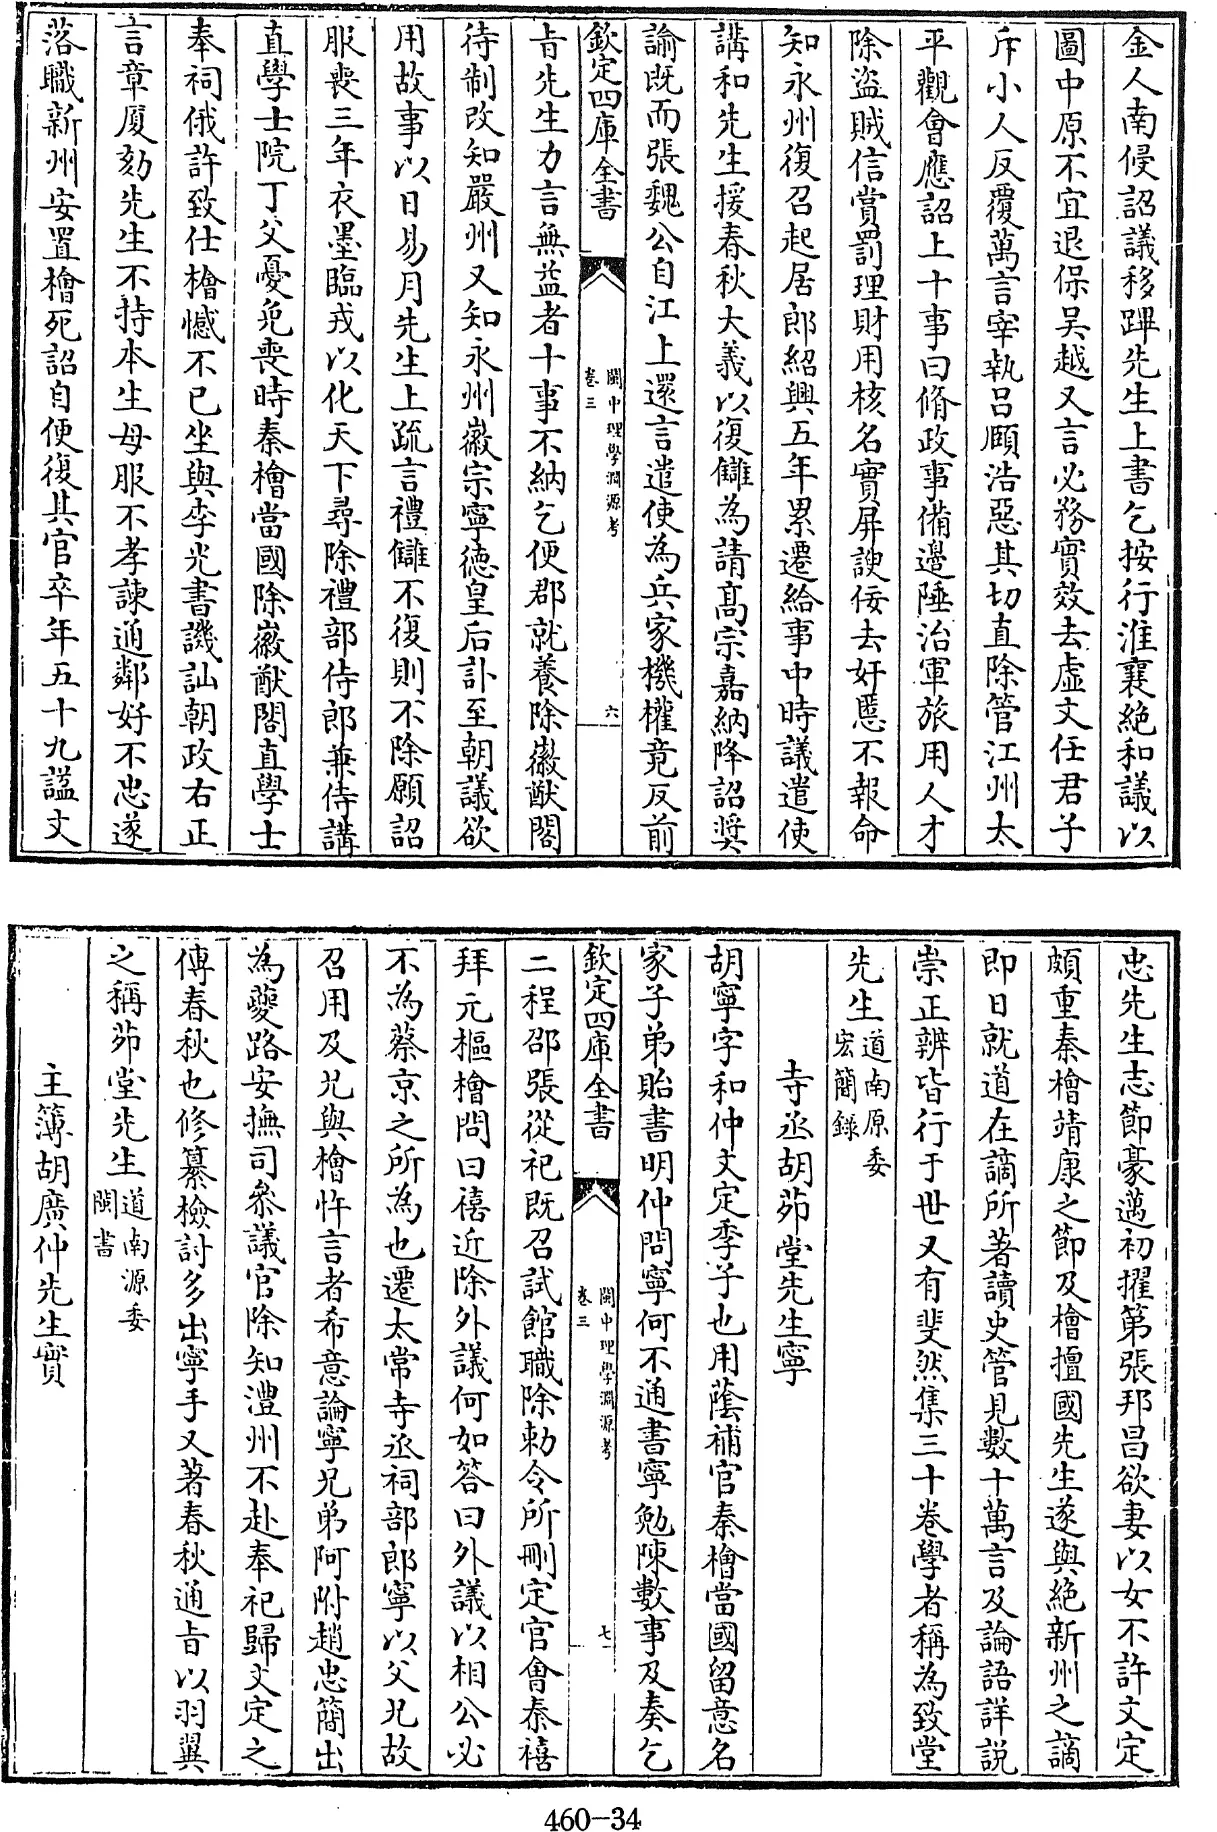 金人南侵詔議移蹕先生上書乞按行淮襄絶和議以
圖中原不宜退保吴越又言必務實效去虚文任君子
斥小人反覆萬言宰執吕頤浩惡其切直除管江州太
平觀會應詔上十事曰脩政事備邊陲治軍旅用人才
除盗賊信賞罰理財用核名實屏諛佞去奸慝不報命
知永州復召起居郎紹興五年累遷給事中時議遣使
講和先生援春秋大義以復讎為請髙宗嘉納降詔奨
諭既而張魏公自江上還言遣使為兵家機權竟反前
欽定四庫全書
閩中理學淵源考
卷三
六
旨先生力言無益者十事不納乞便郡就養除徽猷閣
待制改知嚴州又知永州徽宗寧德皇后訃至朝議欲
用故事以日易月先生上疏言禮讎不復則不除願詔
服喪三年衣墨臨戎以化天下尋除禮部侍郎兼侍講
直學士院丁父憂免喪時秦檜當國除徽猷閣直學士
奉祠俄許致仕檜憾不已坐與李光書譏訕朝政右正
言章厦劾先生不持本生母服不孝諫通鄰好不忠遂
落職新州安置檜死詔自便復其官卒年五十九諡文
忠先生志節豪邁初擢第張邦昌欲妻以女不許文定
頗重秦檜靖康之節及檜擅國先生遂與絶新州之謫
即日就道在謫所著讀史管見數十萬言及論語詳説
崇正辨皆行于世又有斐然集三十卷學者稱為致堂
先生道南原委
宏簡錄
寺丞胡茆堂先生寧
胡寧字和仲文定季子也用蔭補官秦檜當國留意名
家子弟貽書明仲問寧何不通書寧勉陳數事及奏乞
欽定四庫全書
閩中理學淵源考
卷三
七
二程邵張從祀既召試館職除勅令所刪定官會秦禧
拜元樞檜問曰禧近除外議何如答曰外議以相公必
不為蔡京之所為也遷太常寺丞祠部郎寧以父兄故
召用及兄與檜忤言者希意論寧兄弟阿附趙忠簡出
為夔路安撫司叅議官除知澧州不赴奉祀歸文定之
傳春秋也修纂檢討多出寧手又著春秋通旨以羽翼
之稱茆堂先生道南源委
閩書
主簿胡廣仲先生實
460-34